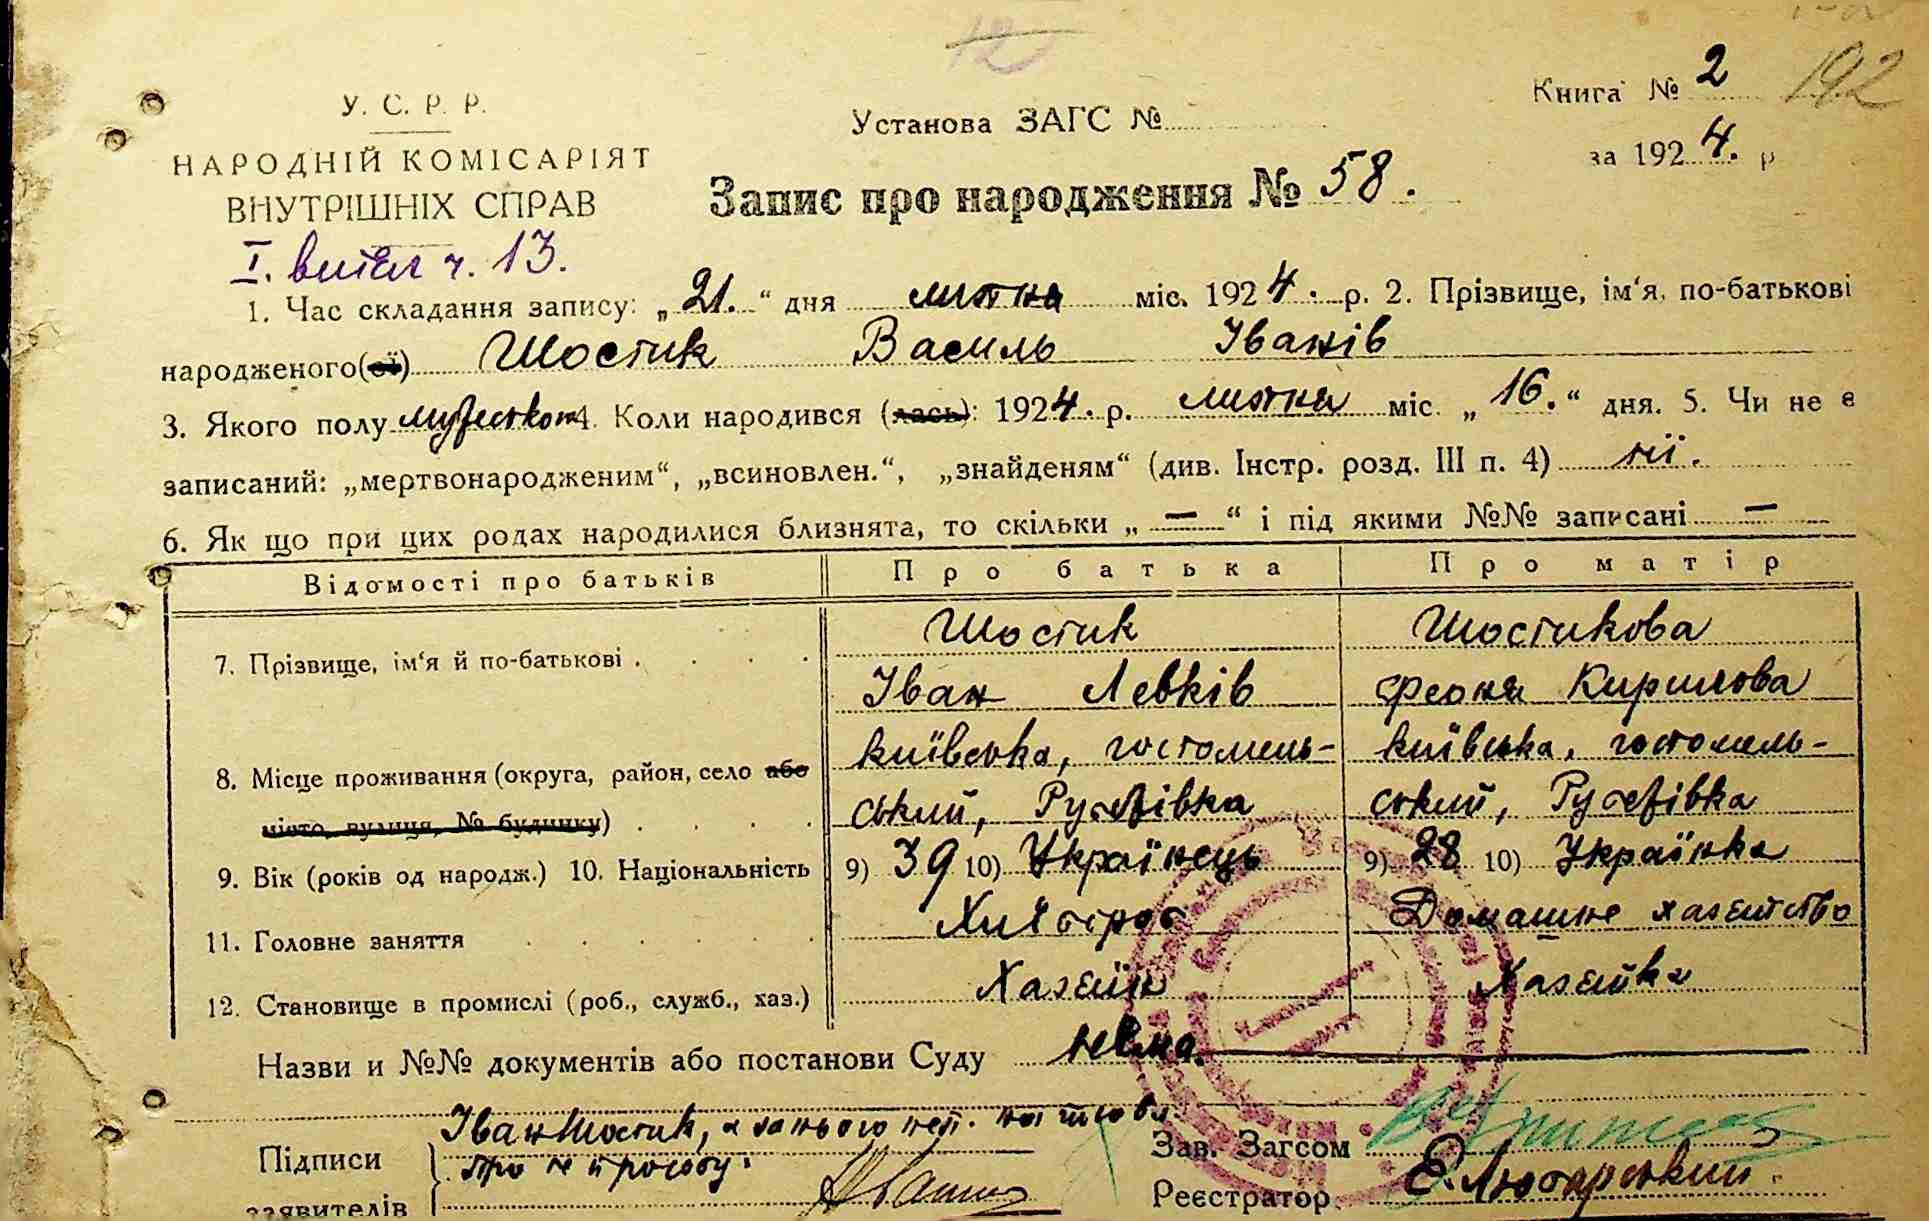 12
192
У. С. Р. Р.
НАРОДНІЙ КОМІСАРІЯТ
ВНУТРІШНІХ СПРАВ
Установа ЗАГС №
Книга № 2
за 1924. р
Запис про народження № 58.
І. витяг ч. 13.
1. Час складання запису: „21.“ дня лютня міс. 1924. р. 2. Прізвище, ім‘я, по-батькові
народженого(ої) Шостик Василь Іванів
3. Якого полу мужеского 4. Коли народився (лась): 1924. р. лютня міс. „16.“ дня. 5. Чи не є
записаний: „мертвонародженим“, „всиновлен.“, „знайденям“ (див. Інстр. розд. III п. 4) ні.
6. Як що при цих родах народилися близнята, то скільки „—“ і під якими №№ записані —
Відомості про батьків Про батька Про матір
7. Прізвище, ім‘я й по-батькові Шостик Шостикова
Іван Левків Феоня Кирилова
8. Місце проживання (округа, район, село або київська, гостомель- київська, гостомель-
місто, вулиця, № будинку) ський, Рудзівка ський, Рудзівка
9. Вік (років од народж.) 10. Національність 9) 39 10) Українець 9) 28 10) Українка
11. Головне заняття Хлібороб Домашнє хазейство
12. Становище в промислі (роб., служб., хаз.) Хазеїн Хазейка
Назви и №№ документів або постанови Суду нема.
Підписи Іван Шостик, а за нього неп.
заявителів про его просьбу
Зав. Загсом
Реєстратор Е. Лютарський